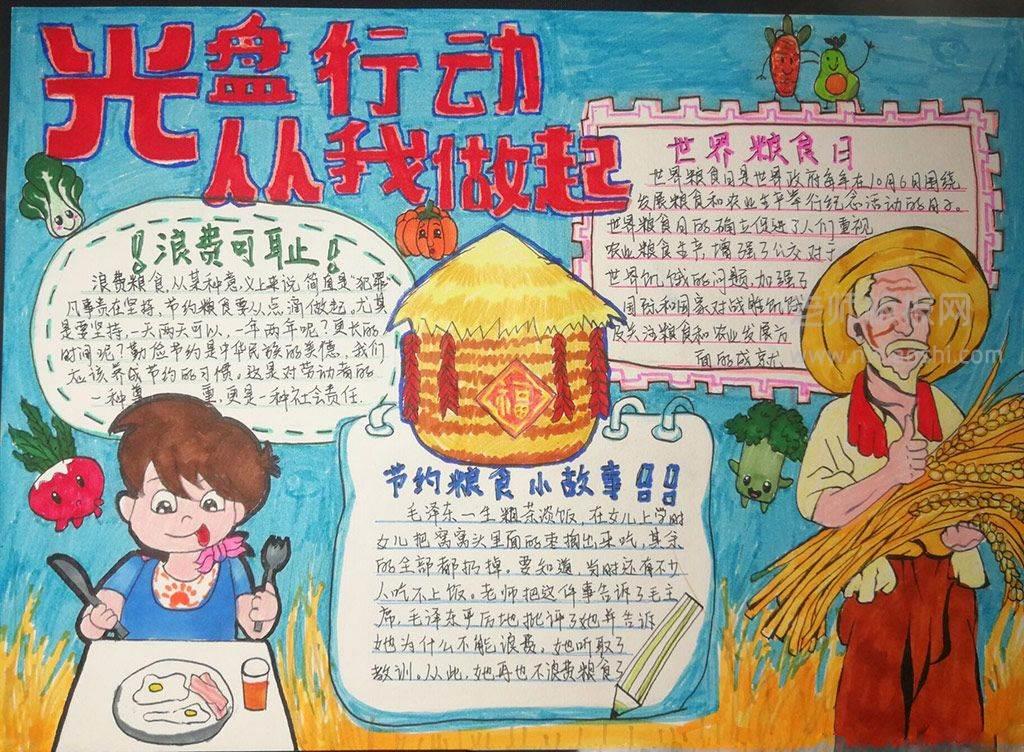 光盘行动
从我做起
世界粮食日
世界粮食日是世界政府每年在10月6日围绕
发展粮食和农业生平举行纪念活动的日子。
世界粮食日的确立促进了人们重视
农业粮食生产,增强了公众对于
世界饥饿的问题,加强了
国际和国家对战胜饥饿
及关注粮食和农业发展方
面的成就
!浪费可耻!
浪费粮食,从某种意义上来说,简直是“犯罪
凡事贵在坚持,节约粮食要从点滴做起。尤其
是要坚持,一天两天可以,一年两年呢?更长的
时间呢?勤俭节约是中华民族的美德,我们
应该养成节约的习惯,这是对劳动者的
一种尊 重,更是一种社会责任.
福
节约粮食小故事!!
毛泽东一生粗茶淡饭,在女儿上学时
女儿把窝窝头里面的枣抠出来吃,其余
的全部都扔掉。要知道,当时还有不少
人吃不上饭。老师把这件事告诉了毛主
席,毛泽东平后地批评了她并告诉
她为什么不能浪费,她听取了
教训。从此,她再也不浪费粮食了